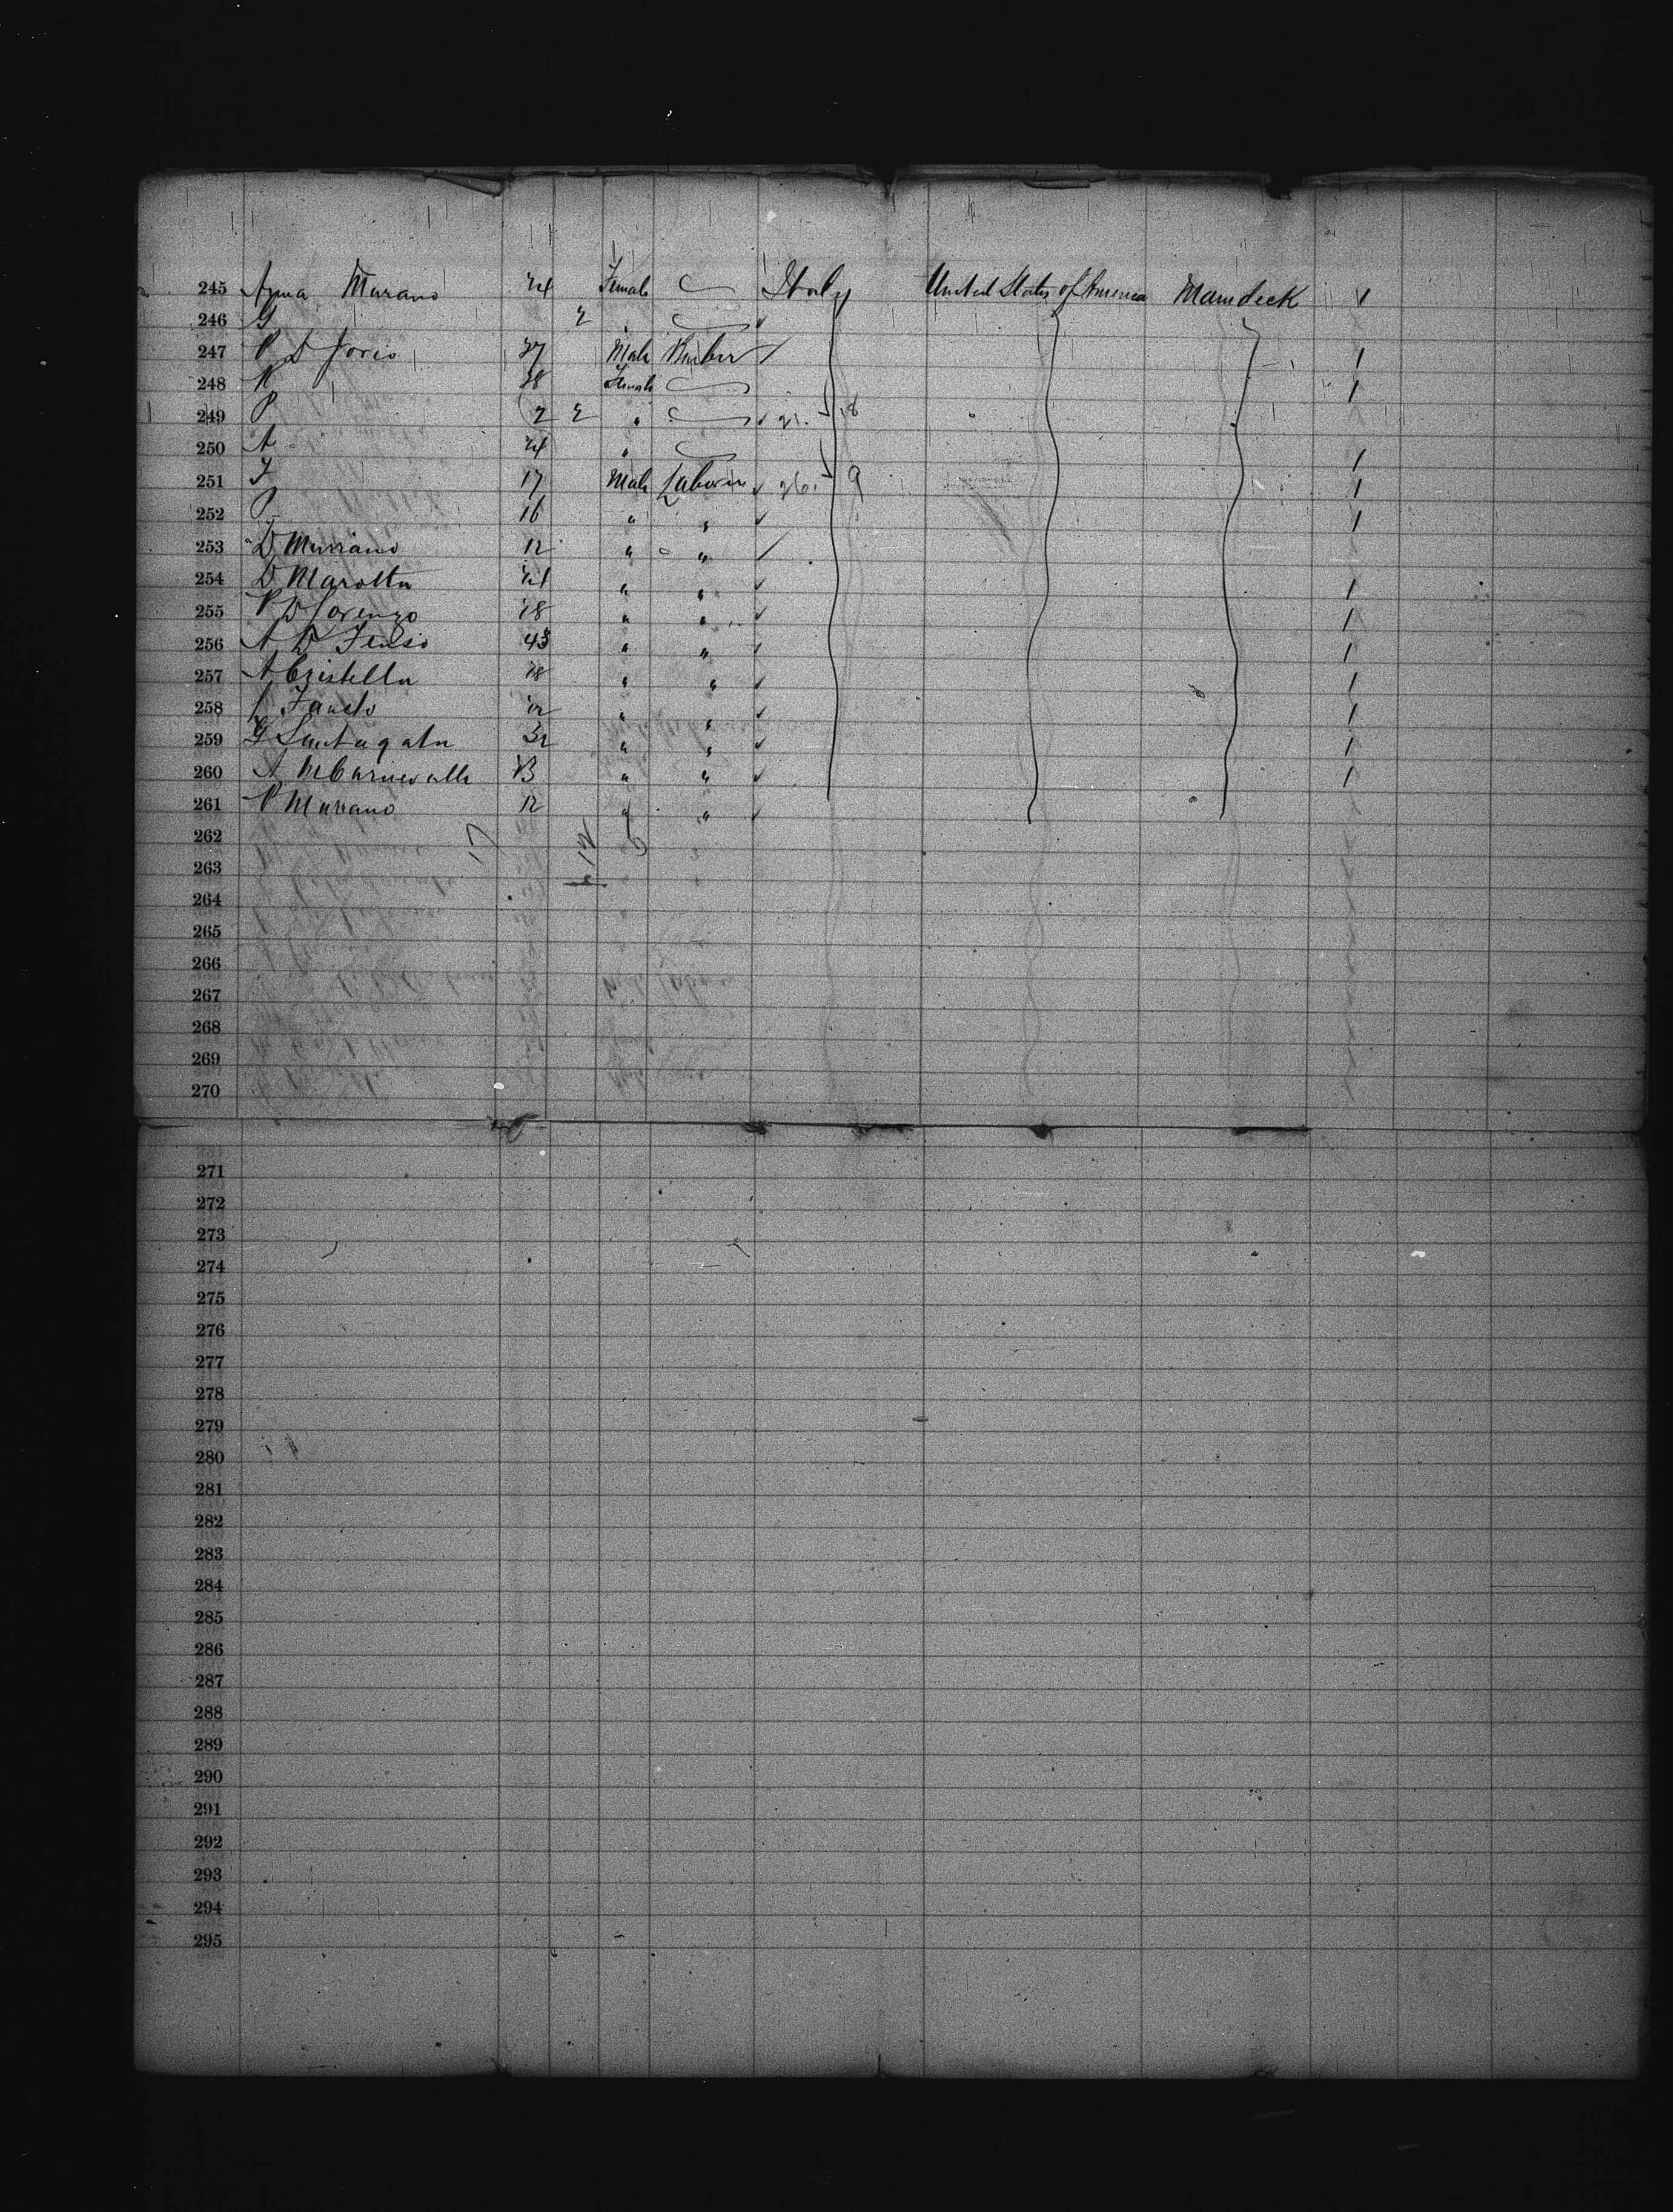 245 Murano 24 Female Italy United States of America Maindeck 1
246 G 2 "
247 P D Jorio 37 Male Barber 1
248 38 Female 1
249 P 2 2 " 21. 18
250 A 24 " 1
251 17 Male Laborer 26. 9 1
252 P 16 " " 1
253 D Murano 12 " "
254 D Marotta 21 " " 1
255 P D Lorenzo 18 " " 1
256 A D 43 " " 1
257 A Cristella 18 " " 1
258 " " 1
259 G Santagata 32 " " 1
260 A " " 1
261 P Murano 12 " "
262 17
263
264
265
266
267
268
269
270
271
272
273
274
275
276
277
278
279
280
281
282
283
284
285
286
287
288
289
290
291
292
293
294
295